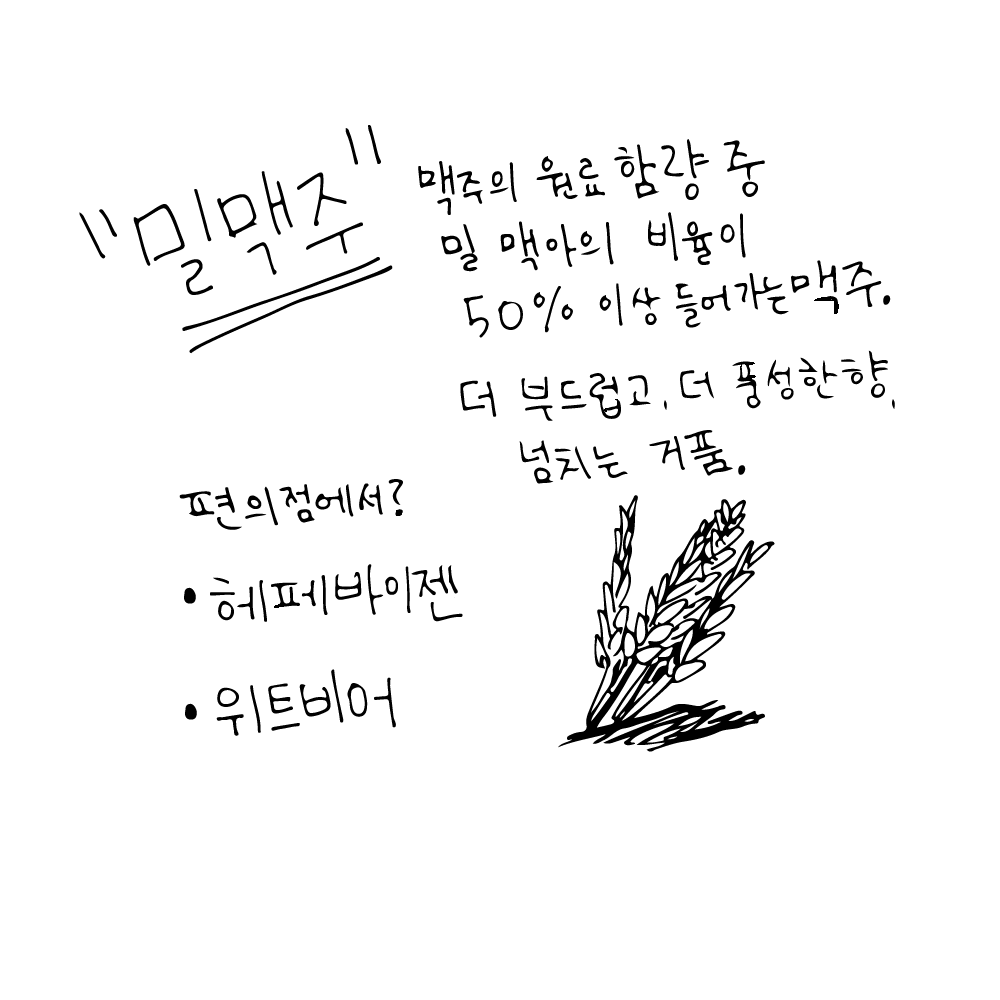 "밀맥주"
맥주의 원료 함량 중
밀 맥아의 비율이
50% 이상 들어가는 맥주.
더 부드럽고, 더 풍성한 향,
넘치는 거품.
편의점에서?
• 헤페바이젠
• 위트비어